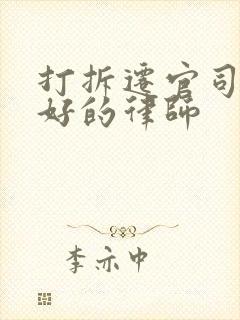 打拆遷官司
好的律師
李亦中